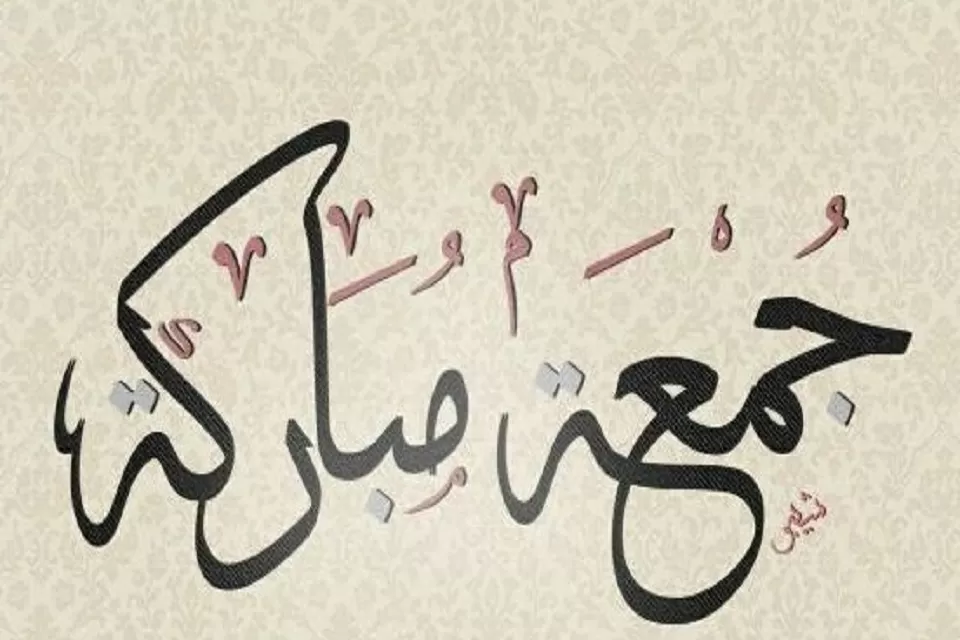 جُمْعَة مُبَارَكَة